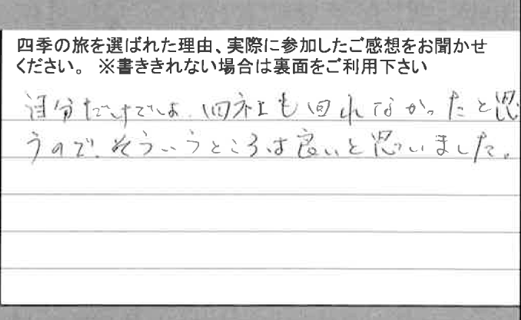 四季の旅を選ばれた理由、実際に参加したご感想をお聞かせ
ください。 ※書ききれない場合は裏面をご利用下さい
自分だけでは、四社も回れなかったと思
うので、そういうところは良いと思いました。